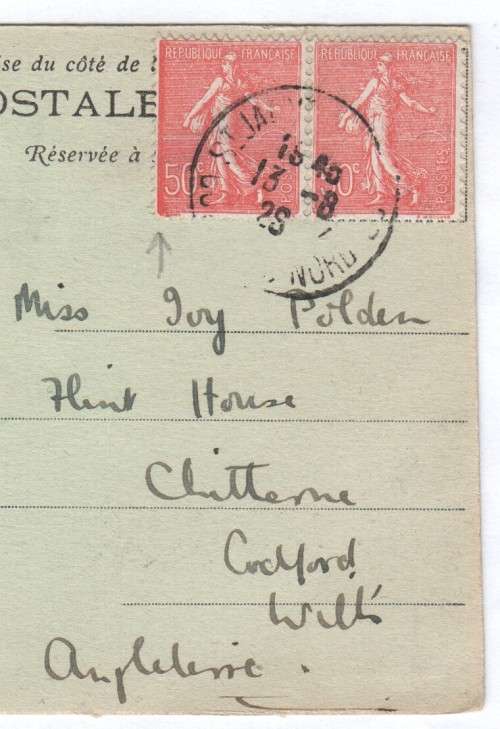 ise du côté de l
OSTALE
Réservée à
REPUBLIQUE FRANÇAISE
50c
POSTES
REPUBLIQUE FRANÇAISE
0c
POSTES
ST JA
13 -8
NORD
Miss Ivy Polden
Flint House
Chitterne
Codford
Wilts
Angleterre.